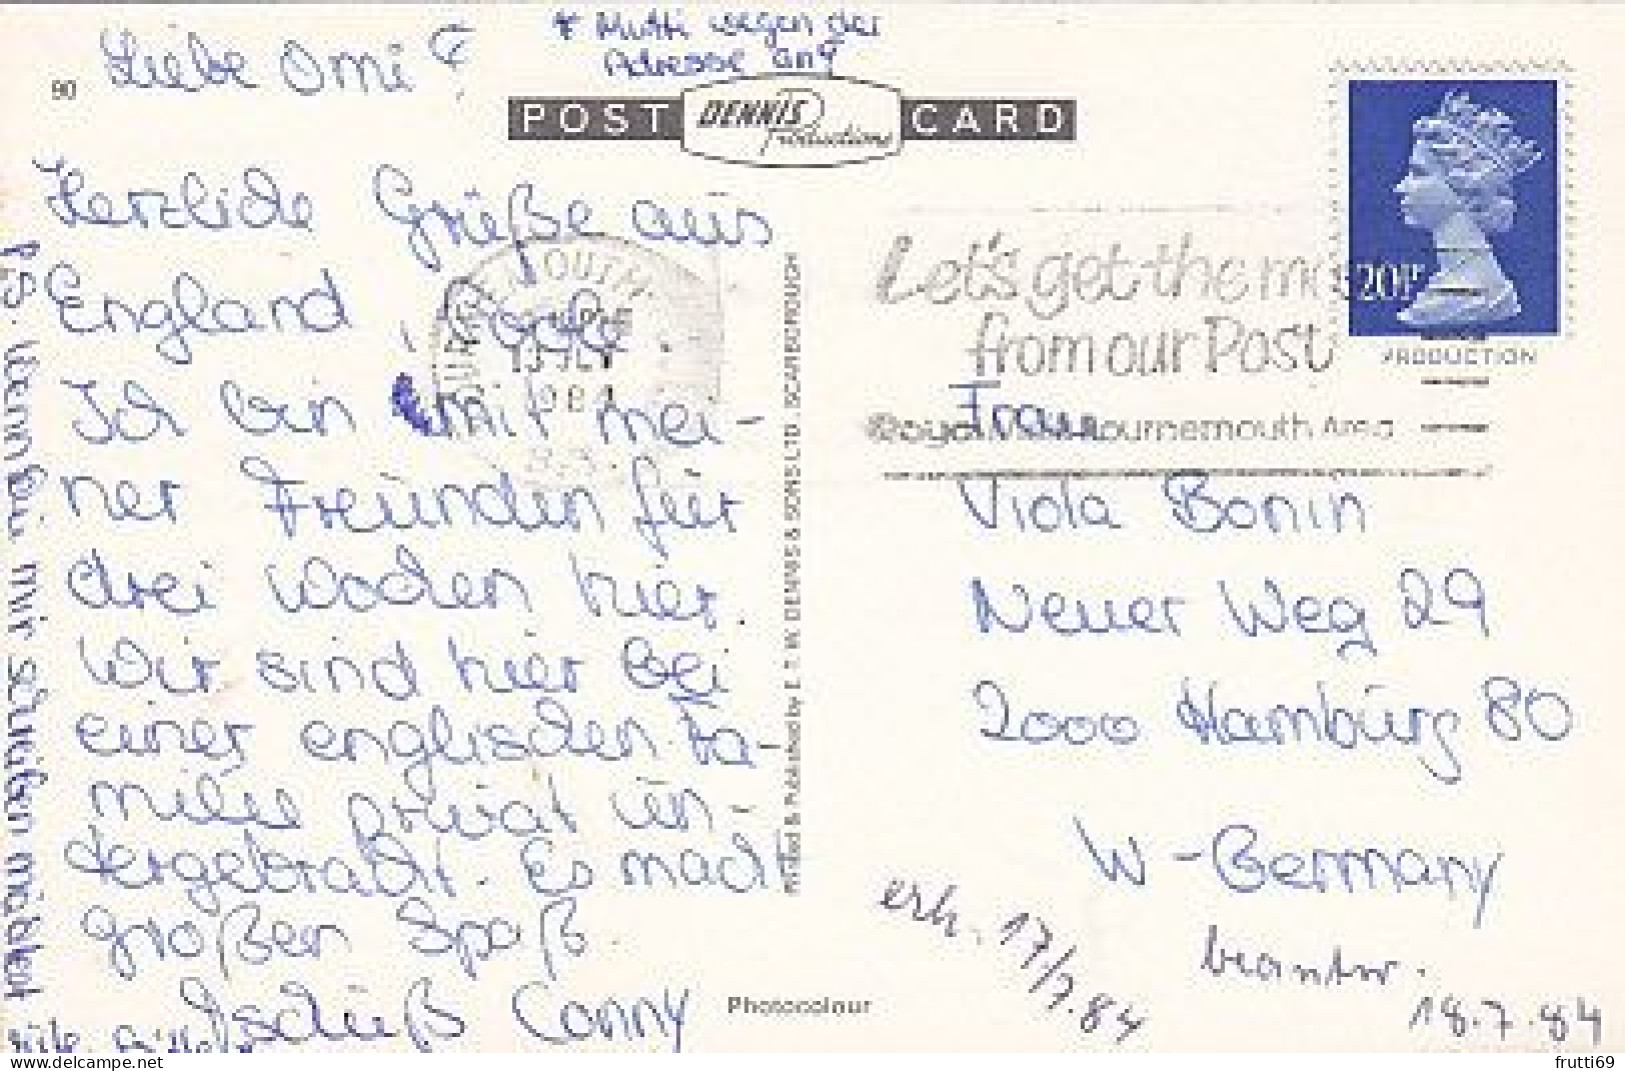 90
Liebe Omi
* Mutti wegen der
Adresse
POST DENNIS Productions CARD
Herzliche Grüße aus
England, Poole.
Ich bin mit mei-
ner Freunden für
drei Wochen hier.
Wir sind hier bei
einer englischen Fa-
milie privat un-
tergebracht. Es macht
großen Spaß.
Tschüß Conny
P.S. Wenn Du mir schreiben möchtest
Printed & Published by E. T. W. DENNIS & SONS LTD., SCARBOROUGH
Photocolour
BOURNEMOUTH
JLY
Let's get the mo
from our Post
Royal Mail Bournemouth Area
20P
PRODUCTION
Frau
Viola Bonin
Neuer Weg 29
2000 Hamburg 80
W-Germany
erh. 17/7.84
beantw.
18.7.84
frutti69